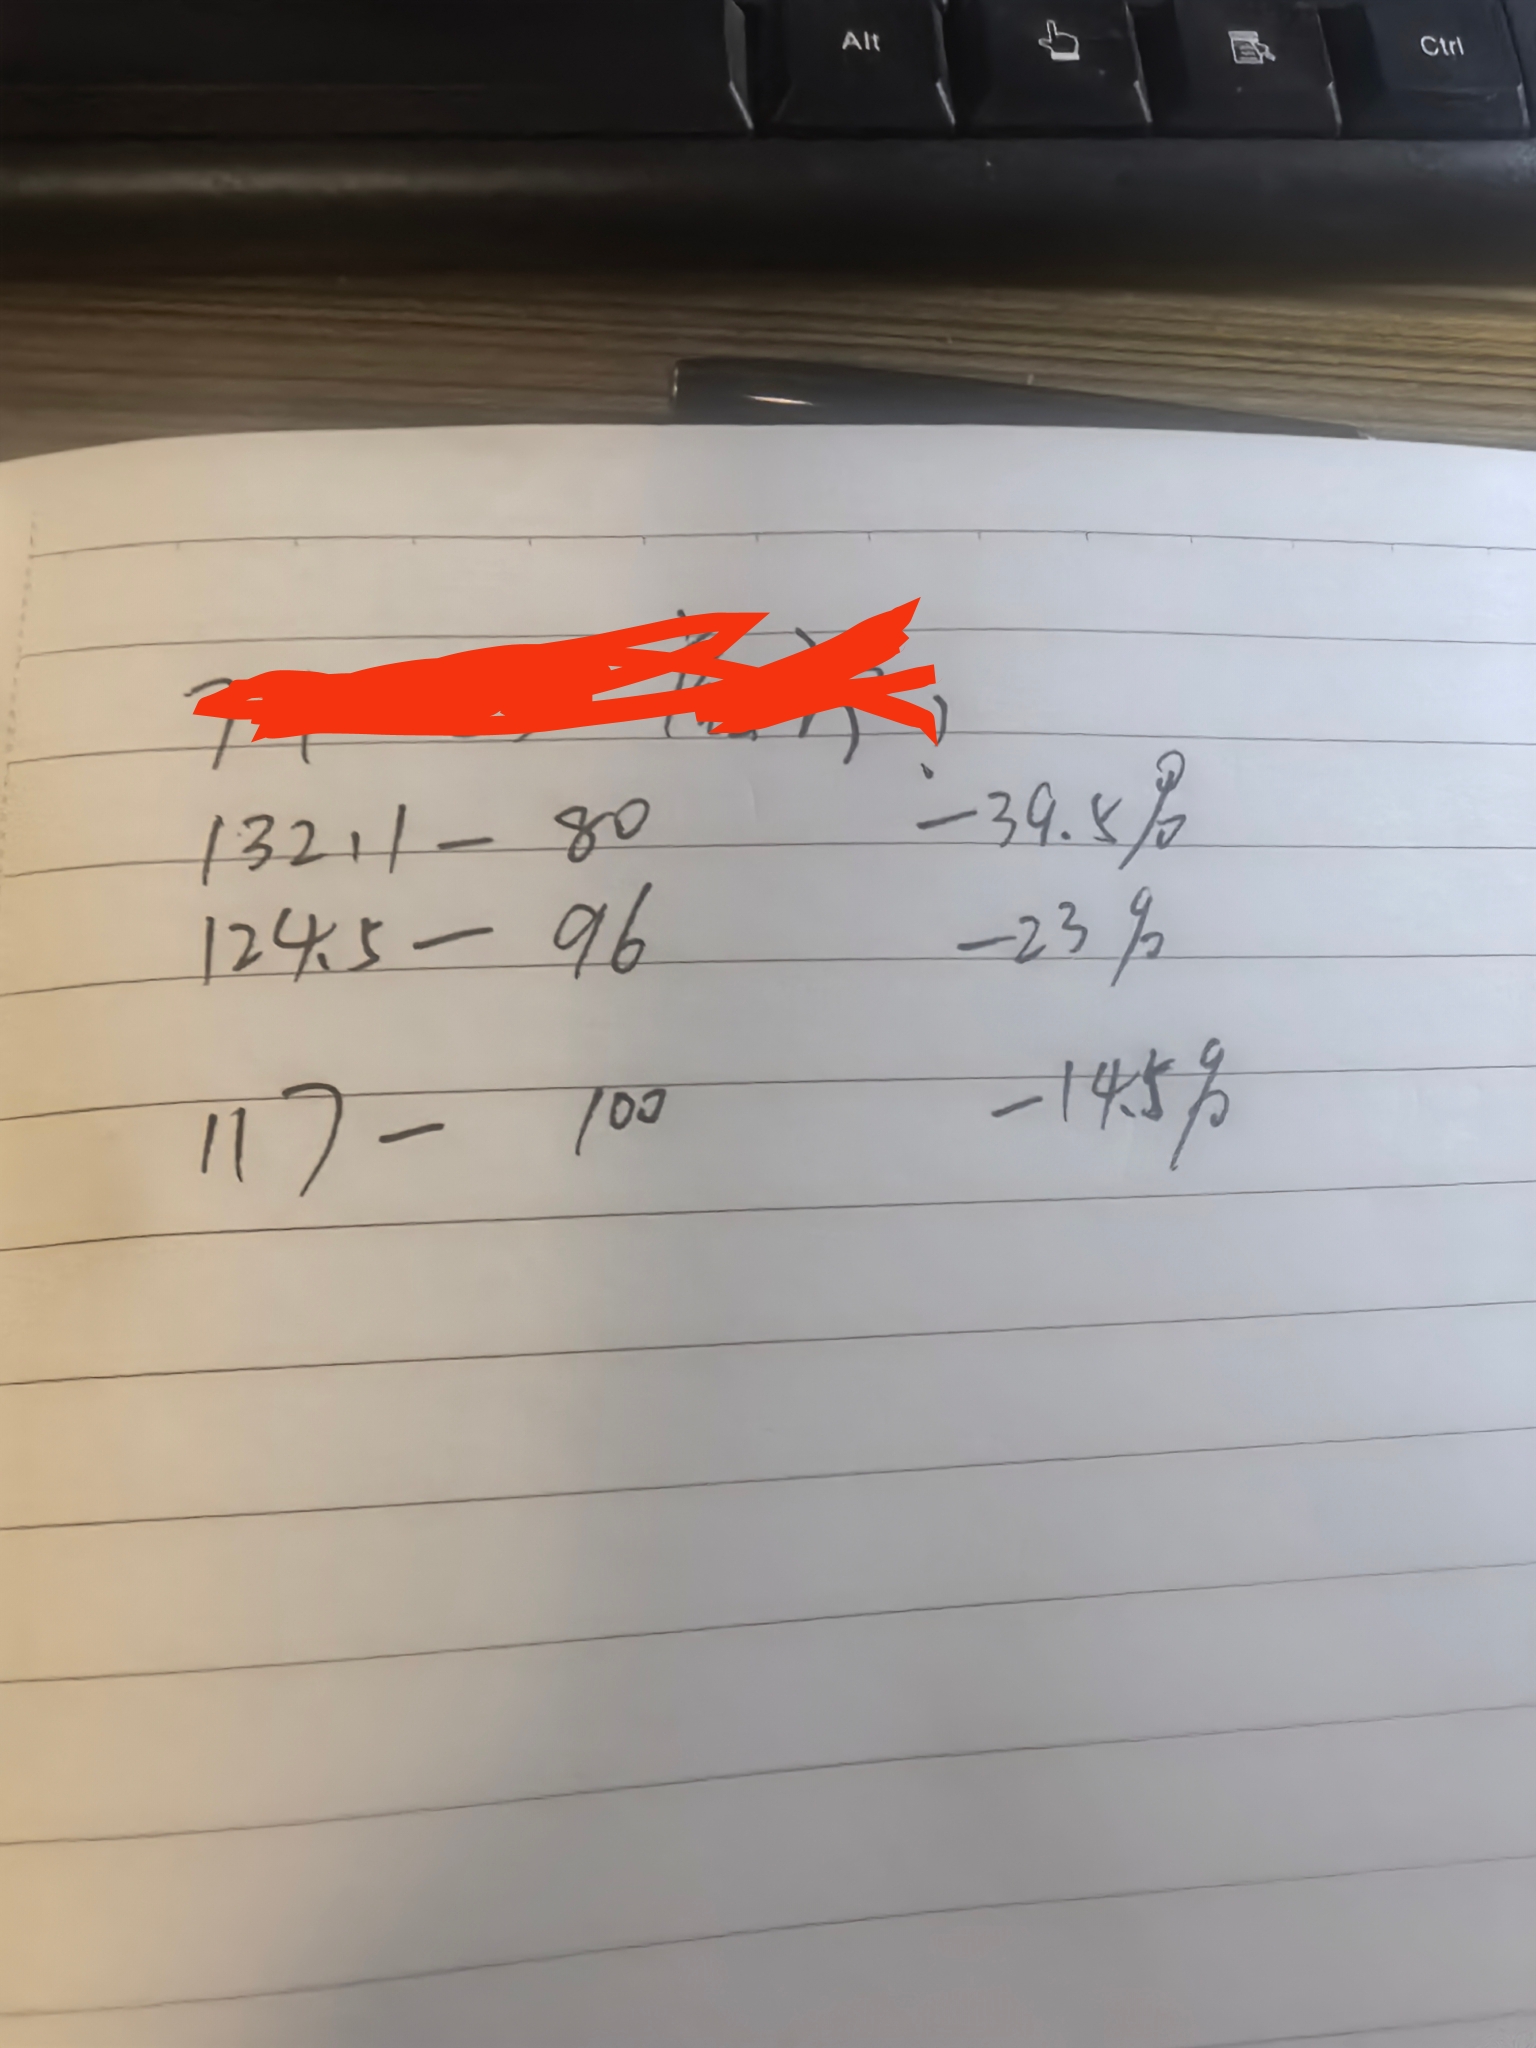 Alt Ctrl
132.1 — 80 -39.5%
124.5 — 96 -23%
117 — 100 -14.5%